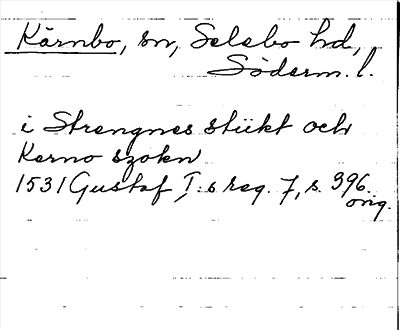 Kärnbo, sn, Selebo hd,
Söderm. l.
i Strengnes stükt och
Kerno szokn
1531 Gustaf I:s reg. 7, s. 396.
orig.